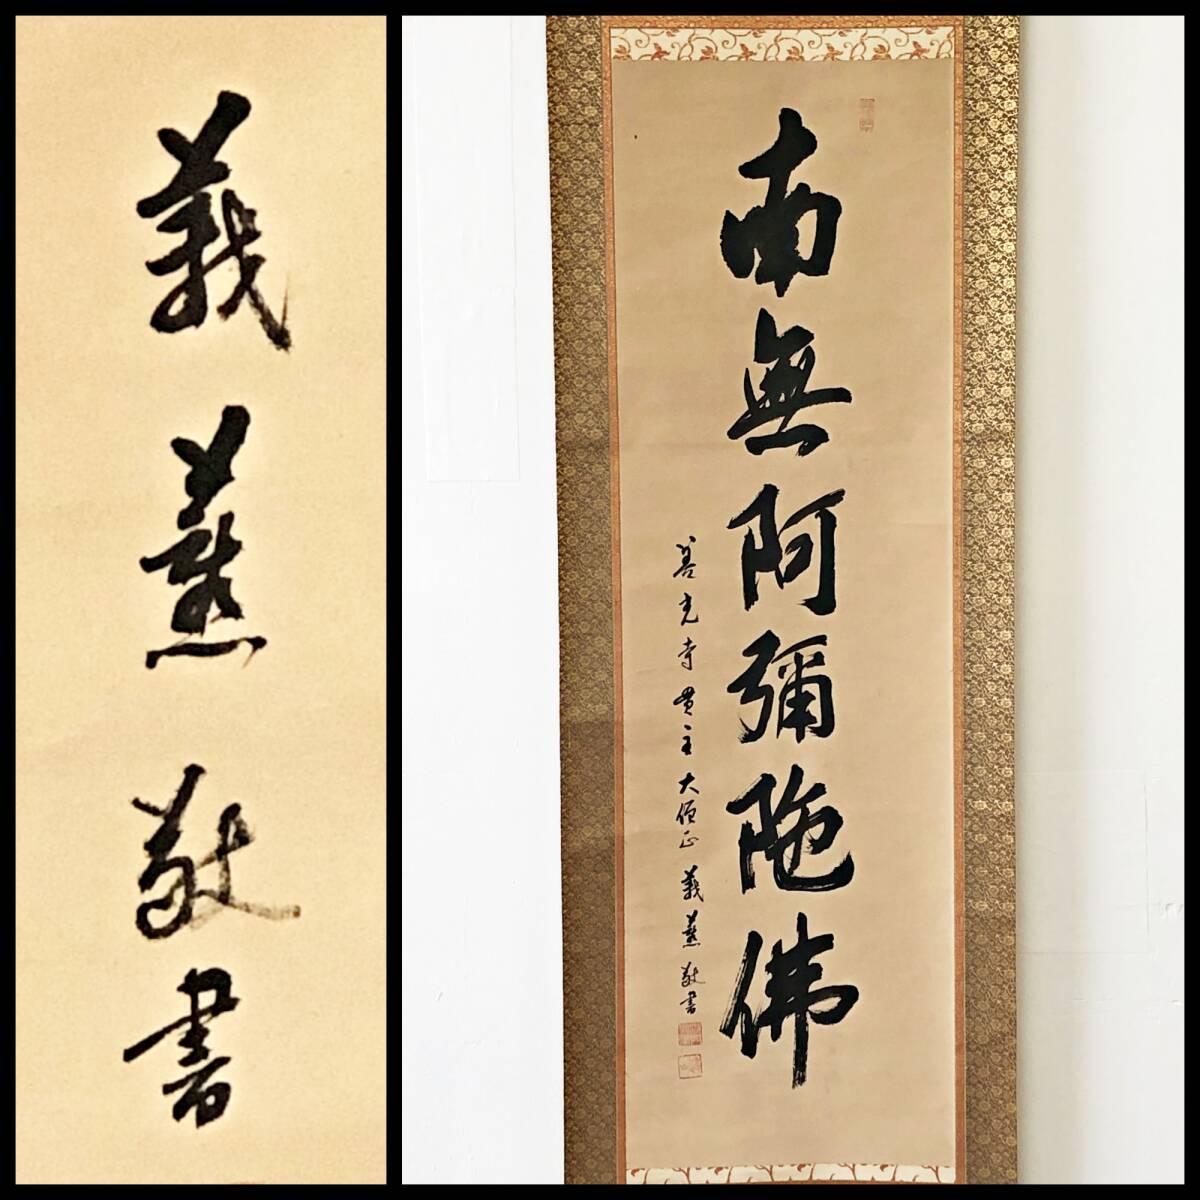 義薫敬書
南無阿彌陀佛
善光寺貫主大僧正義薫敬書